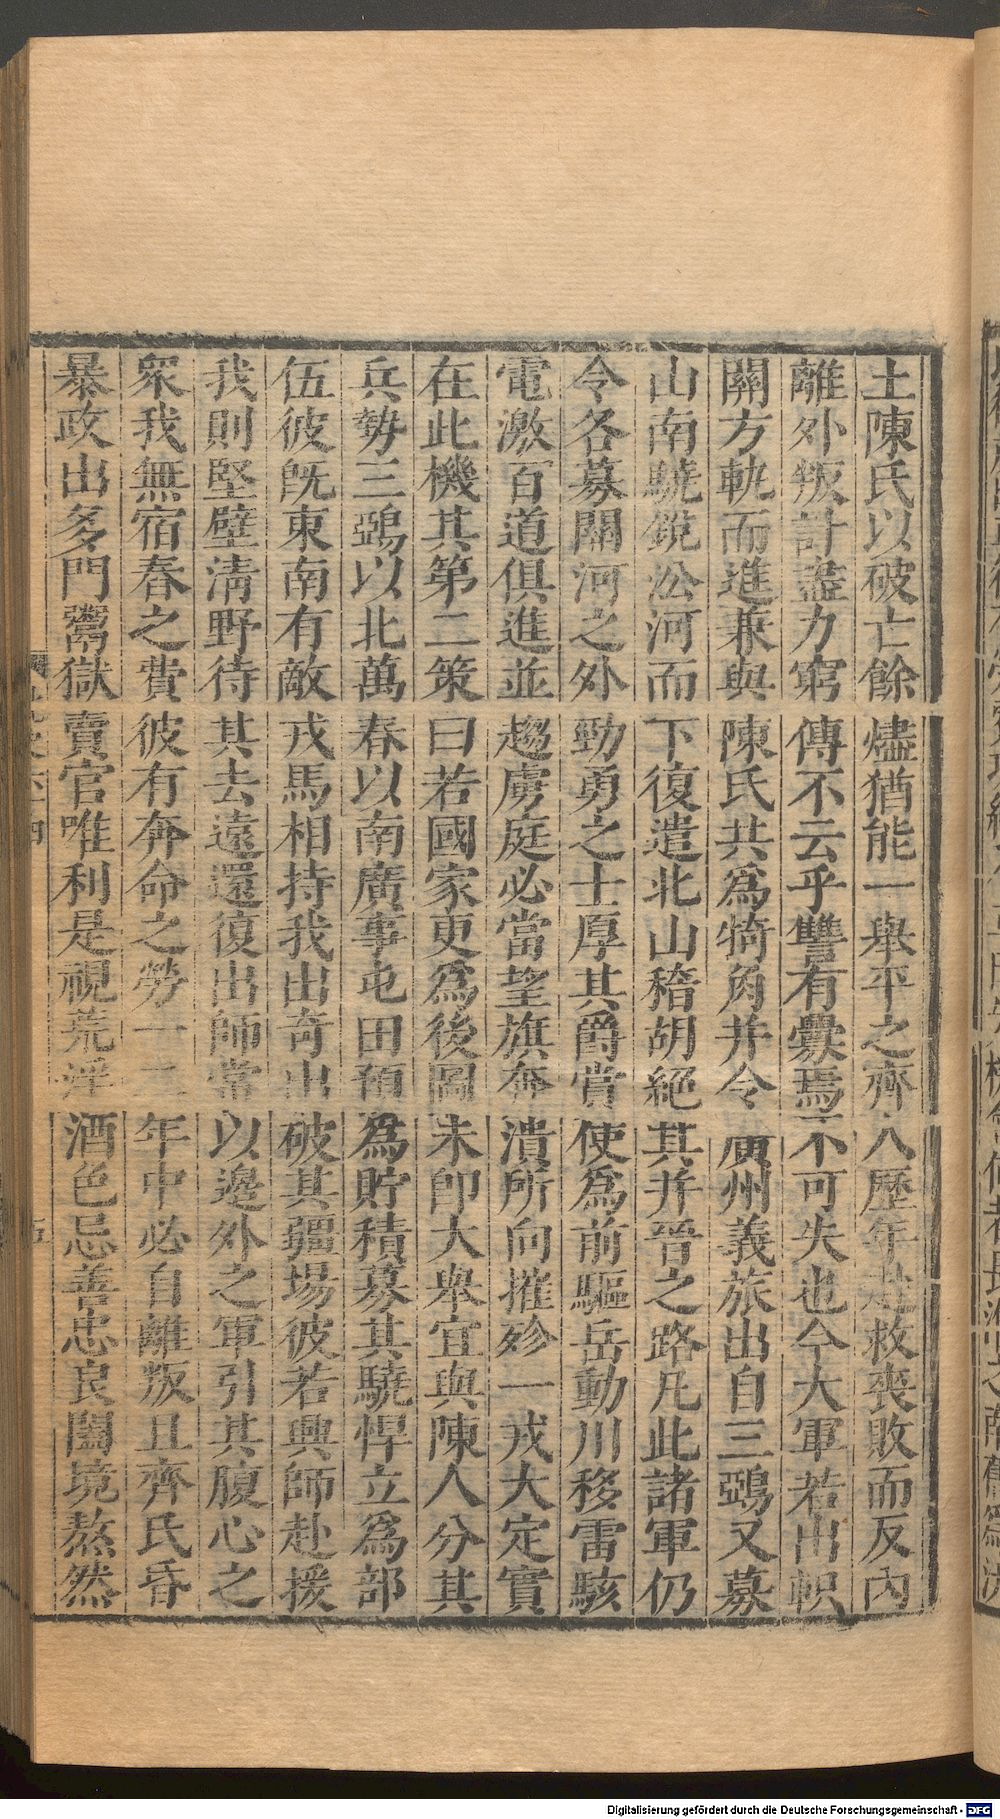 土陳氏以破亡餘燼猶能一舉平之齊人歷年赴救喪敗而反內
離外叛計盡力窮傳不云乎讐有釁焉不可失也今大軍若出軹
關方軌而進兼與陳氏共爲犄角并令廣州義旅出自三鵶又募
山南驍銳沿河而下復遣北山稽胡絕其并晉之路凡此諸軍仍
令各募關河之外勁勇之士厚其爵賞使爲前驅岳動川移雷駭
電激百道俱進並趨虜庭必當望旗奔潰所向摧殄一戎大定實
在此機其第二策曰若國家更爲後圖未卽大舉宜與陳人分其
兵勢三鵶以北萬春以南廣事屯田預爲貯積募其驍悍立爲部
伍彼旣東南有敵戎馬相持我出奇出破其疆場彼若興師赴援
我則堅壁淸野待其去遠還復出師常以邊外之軍引其腹心之
衆我無宿舂之費彼有奔命之勞一二年中必自離叛且齊氏昏
暴政出多門鬻獄賣官唯利是視荒淫酒色忌善忠良闔境熬然